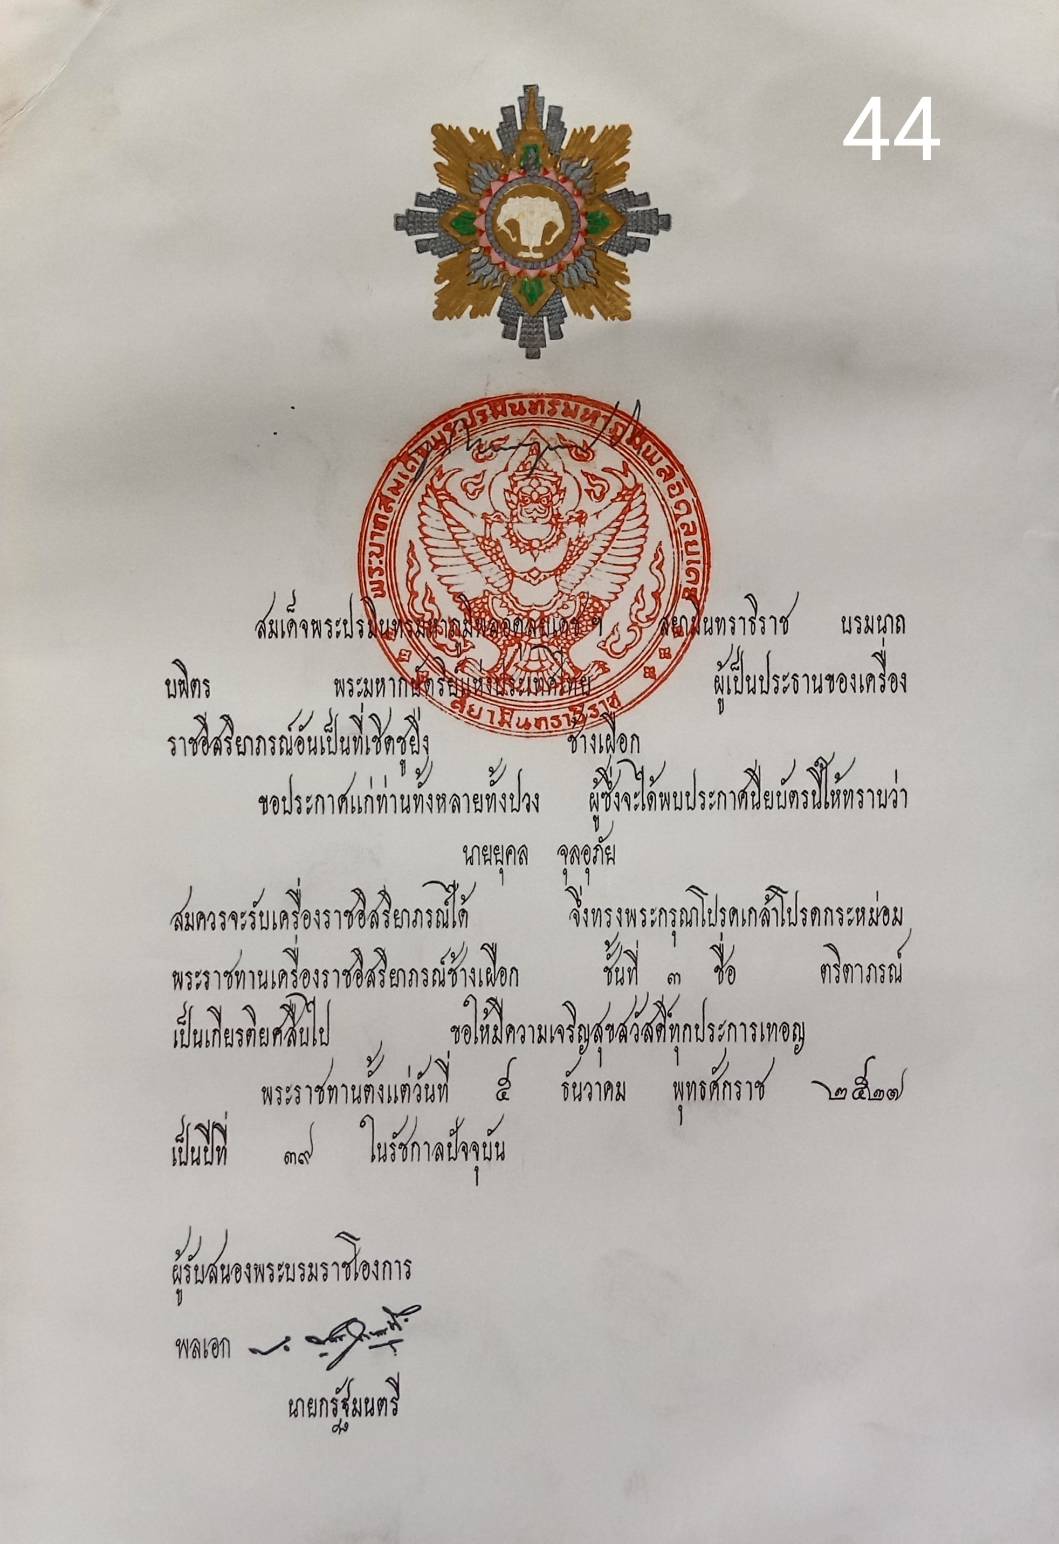 44
พระบาทสมเด็จพระปรมินทรมหาภูมิพลอดุลยเดช
สยามินทราธิราช
สมเด็จพระปรมินทรมหาภูมิพลอดุลยเดช ฯ สยามินทราธิราช บรมนาถ
บพิตร พระมหากษัตริย์แห่งประเทศไทย ผู้เป็นประธานของเครื่อง
ราชอิสริยาภรณ์อันเป็นที่เชิดชูยิ่ง ช้างเผือก
ขอประกาศแก่ท่านทั้งหลายทั้งปวง ผู้ซึ่งจะได้พบประกาศนียบัตรนี้ให้ทราบว่า
นายยุคล จุลอุภัย
สมควรจะรับเครื่องราชอิสริยาภรณ์ได้ จึ่งทรงพระกรุณาโปรดเกล้าโปรดกระหม่อม
พระราชทานเครื่องราชอิสริยาภรณ์ช้างเผือก ชั้นที่ ๓ ชื่อ ตริตาภรณ์
เป็นเกียรติยศสืบไป ขอให้มีความเจริญสุขสวัสดิ์ทุกประการเทอญ
พระราชทานตั้งแต่วันที่ ๕ ธันวาคม พุทธศักราช ๒๕๒๗
เป็นปีที่ ๓๙ ในรัชกาลปัจจุบัน
ผู้รับสนองพระบรมราชโองการ
พลเอก
นายกรัฐมนตรี